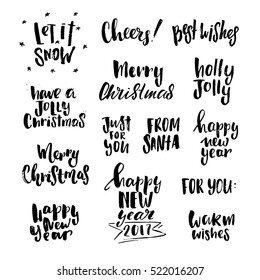 LET IT
SNOW
Cheers!
Best wishes
Merry
Christmas
holly
Jolly
have a
Jolly
Christmas
Just
for
you
FROM
SANTA
happy
new
year
Merry
Christmas
happy
NEW
year
2017
FOR YOU:
happy
New
year
warm
wishes
shutterstock
522016207